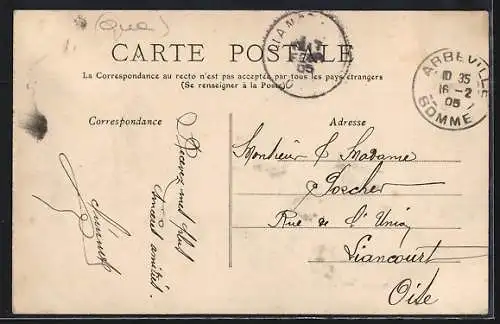 (Qua)
CARTE POSTALE
La Correspondance au recto n'est pas acceptée par tous les pays étrangers
(Se renseigner à la Poste)
ABBEVILLE
10 35
16 - 2
05
SOMME
05
Correspondance
Adresse
Recevez mes plus
sincères amitiés.
Monsieur & Madame
Poscher
Rue de l'Union
Liancourt
Oise